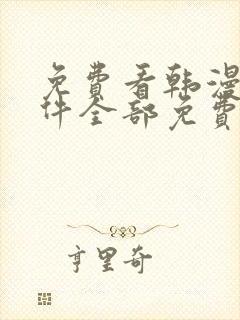 免费看韩漫
件全部免费
亨里奇